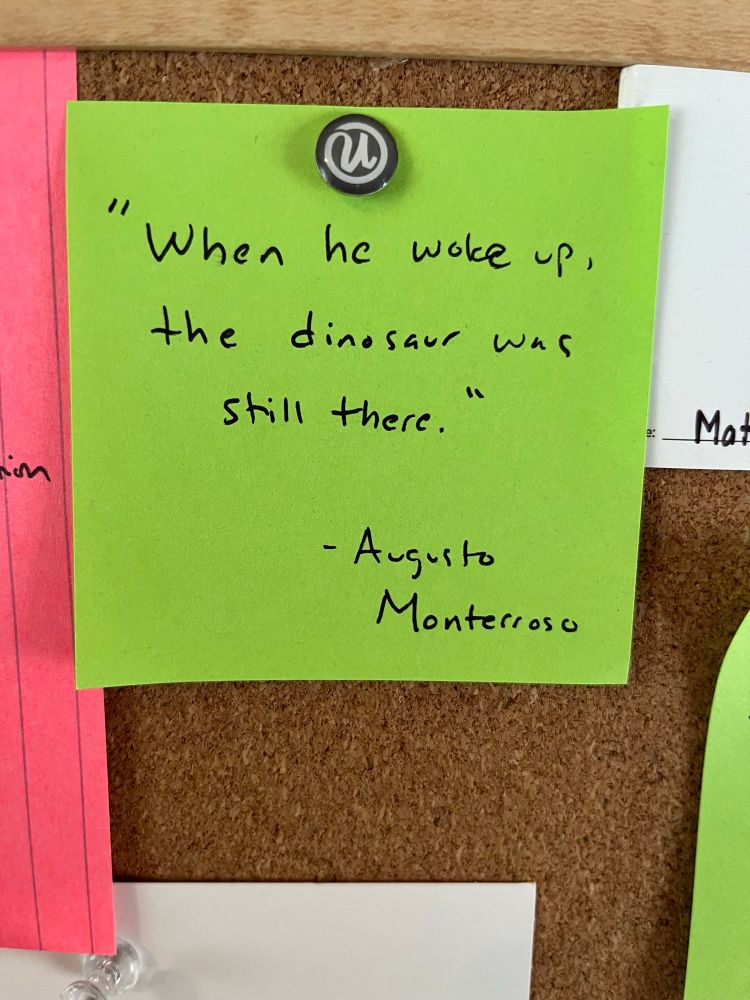 u
"When he woke up,
the dinosaur was
still there."
- Augusto
Monterroso
e: